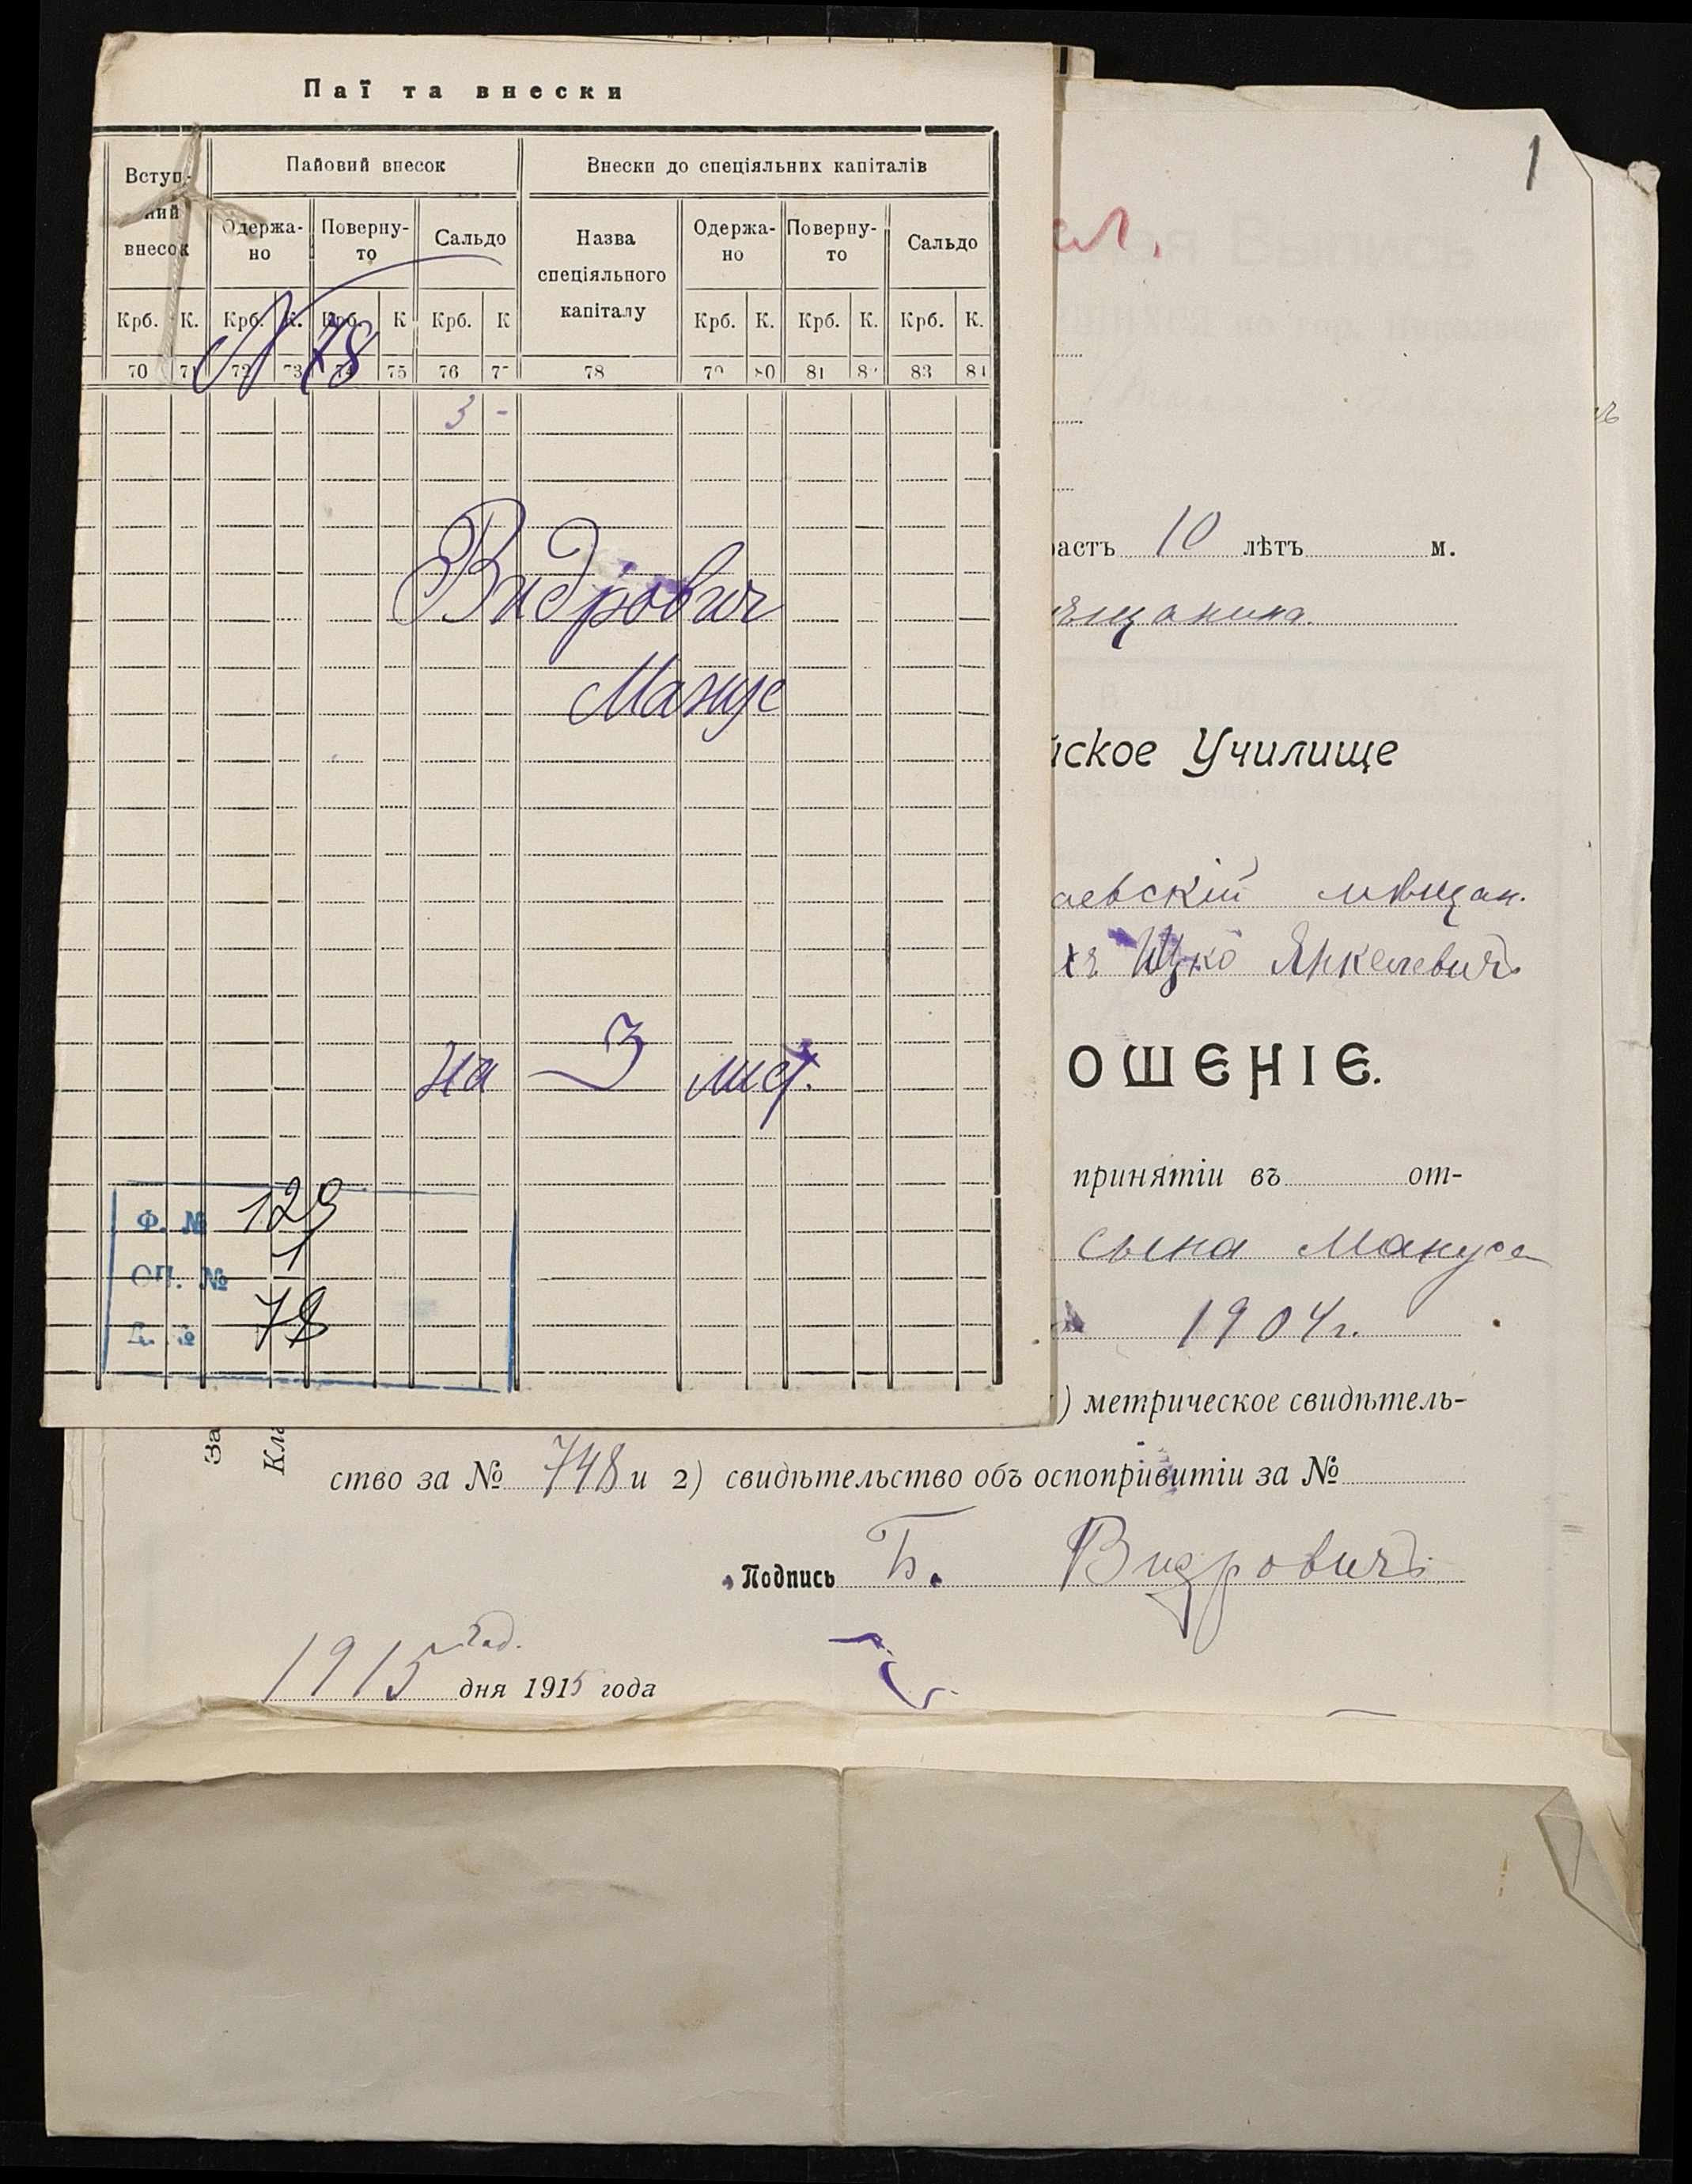 Паї та внески
Вступ-
ний
внесок
Пайовий внесок
Внески до спеціяльних капіталів
Одержа-
но
Поверну-
то
Сальдо
Назва
спеціяльного
капіталу
Одержа-
но
Поверну-
то
Сальдо
Крб. К. Крб. К. Крб. К Крб. К Крб. К. Крб. К. Крб. К.
70 71 72 73 74 75 76 78 81 83
N 78
3 -
Видрович
Манус
на 3 лист.
Ф. № 129
ОП. № 1
Д. № 78
1
ал.
растъ 10 лѣтъ м.
ѣщанина.
йское Училище
аевскій мѣщан.
хъ Ицко Янкелевичъ
ОШЕНІЕ.
принятіи въ от-
сына Мануса
1904 г.
) метрическое свидѣтель-
За
Кла
ство за № 748 и 2) свидѣтельство объ оспопривитіи за №
Подпись Б. Видровичъ
1915 год.
дня 1915 года